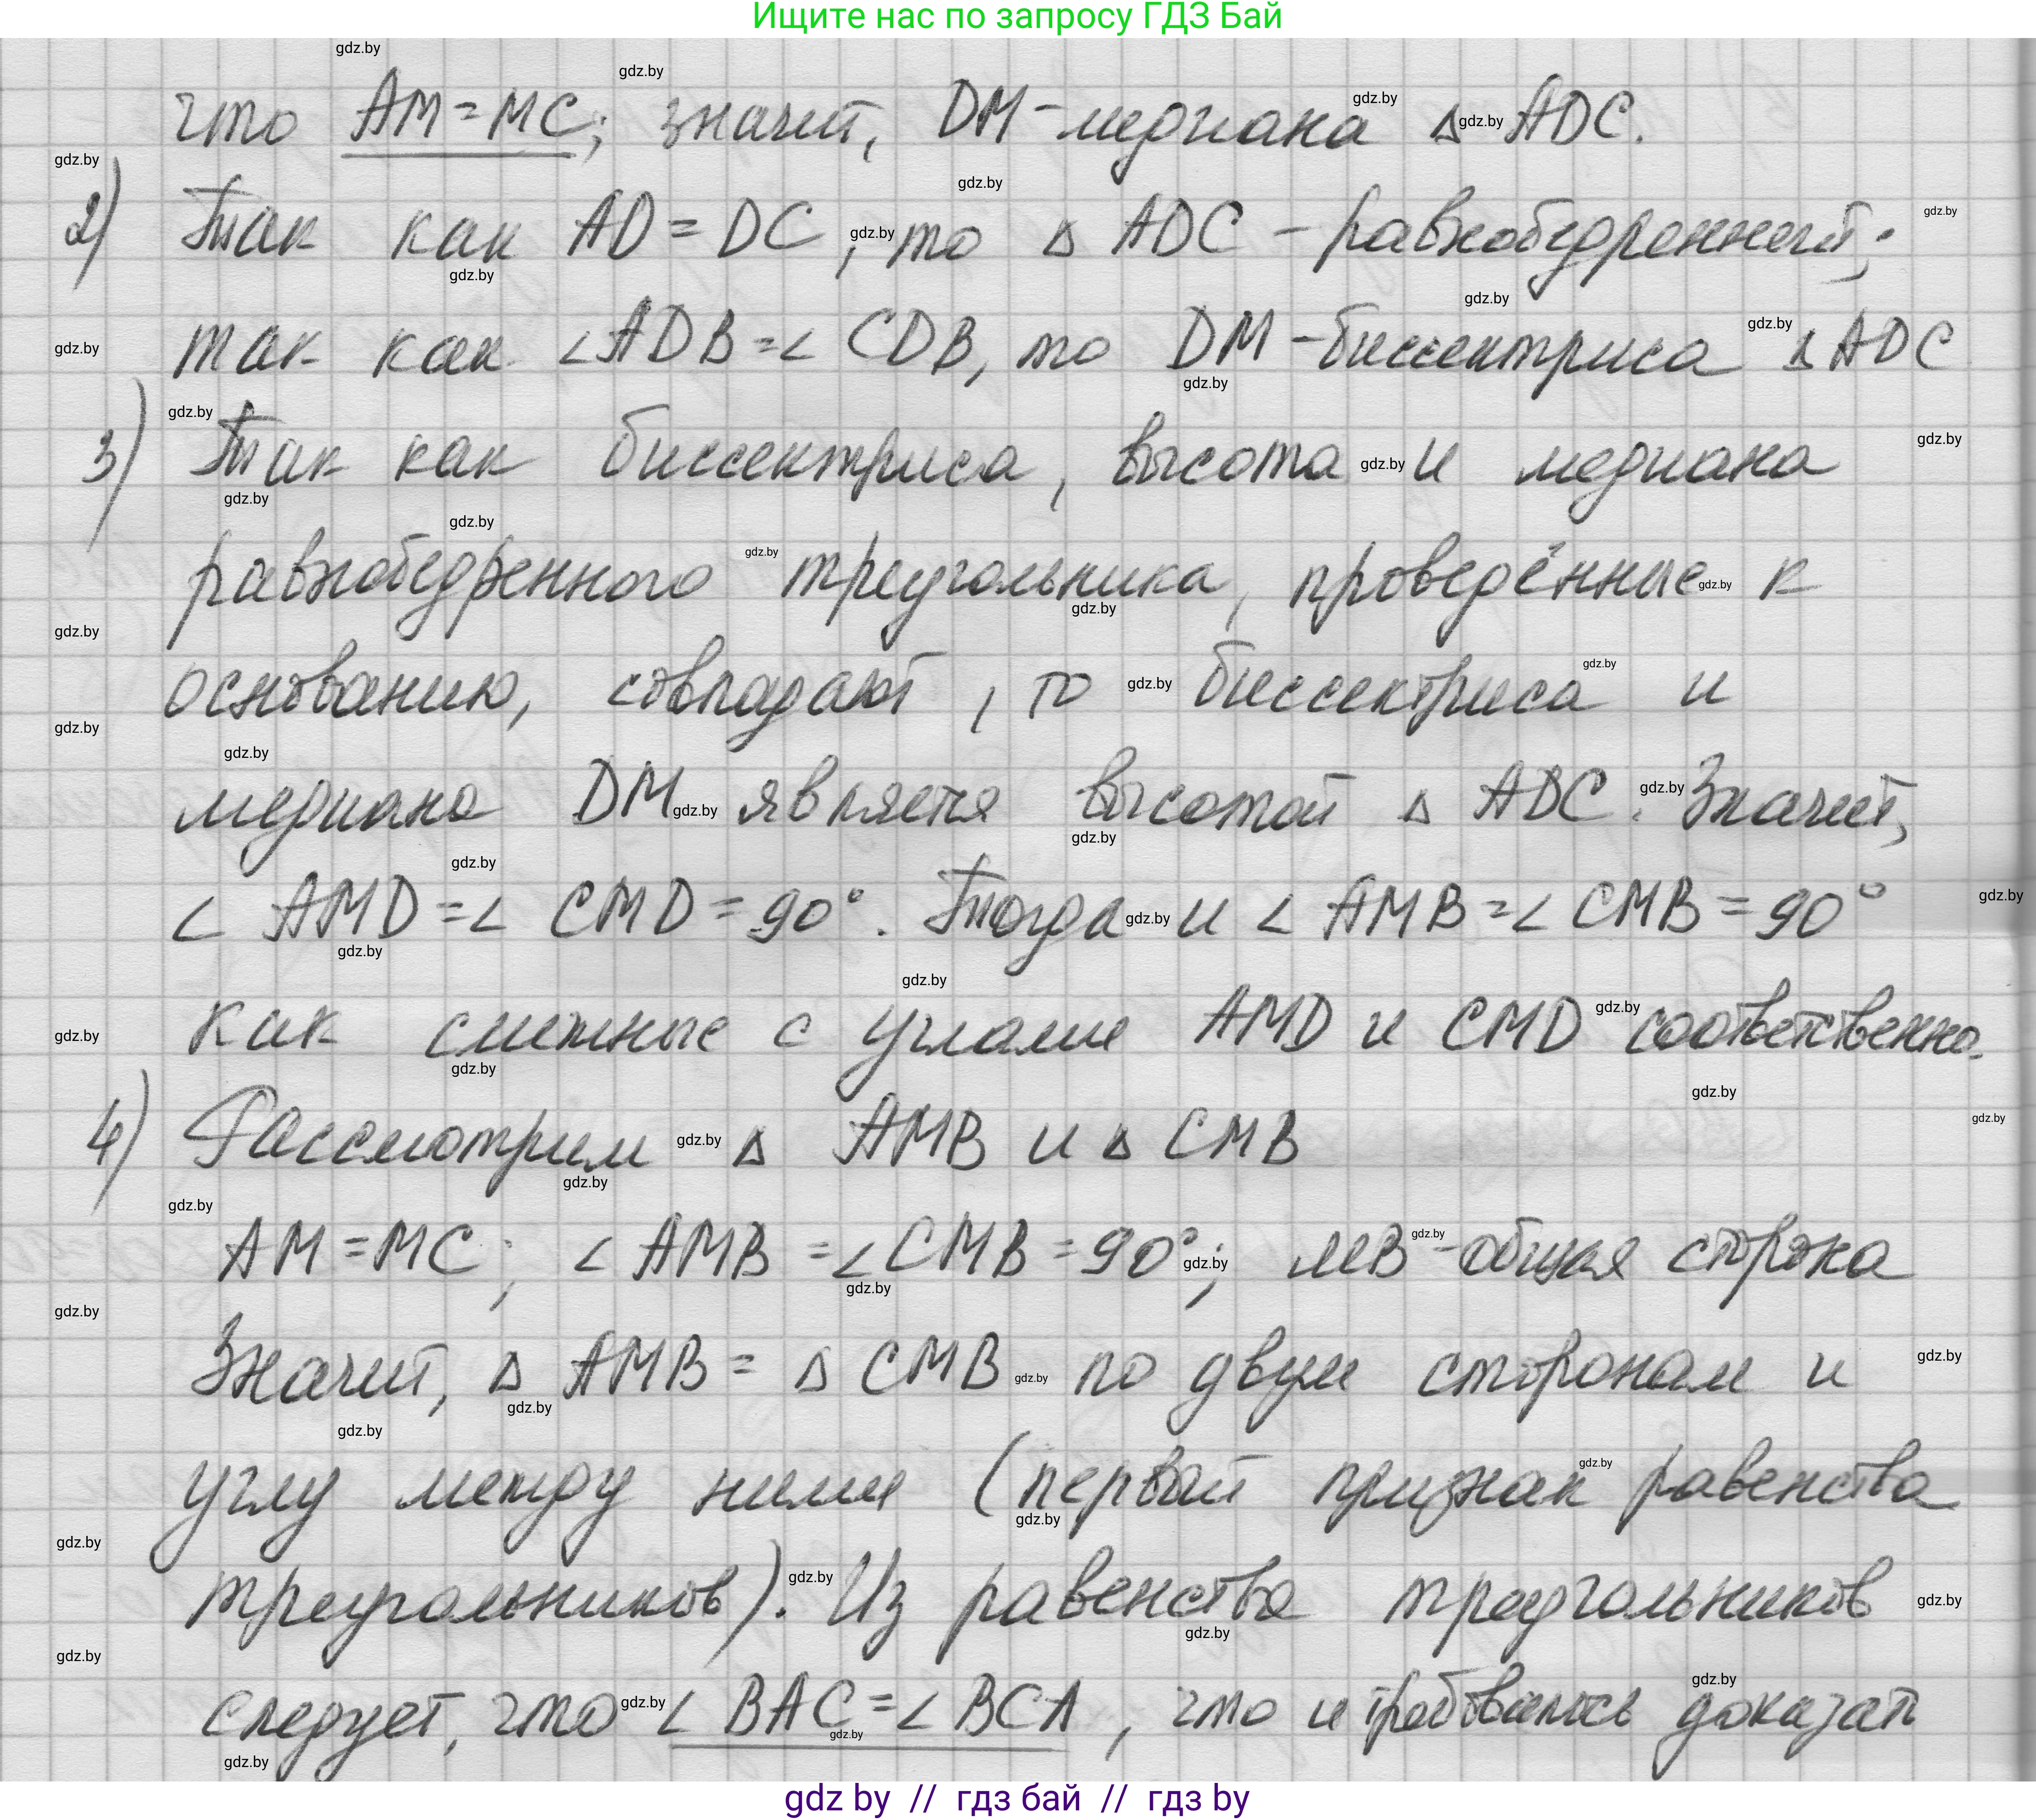 Ищите нас по запросу ГДЗ Бай
что AM=MC; значит, DM-медиана Δ ADC.
2) Так как AD=DC, то Δ ADC - равнобедренный;
так как ∠ADB=∠CDB, то DM-биссектриса Δ ADC
3) Так как биссектриса, высота и медиана
равнобедренного треугольника, проведённые к
основанию, совпадают, то биссектриса и
медиана DM является высотой Δ ADC. Значит,
∠ AMD=∠ CMD=90°. Тогда и ∠ AMB=∠ CMB=90°
как смежные с углами AMD и CMD соответственно.
4) Рассмотрим Δ AMB и Δ CMB
AM=MC; ∠ AMB=∠CMB=90°; MB-общая сторона
Значит, Δ AMB= Δ CMB по двум сторонам и
углу между ними (первый признак равенства
треугольников). Из равенства треугольников
следует, что ∠ BAC=∠ BCA, что и требовалось доказать
gdz by // гдз бай // гдз by